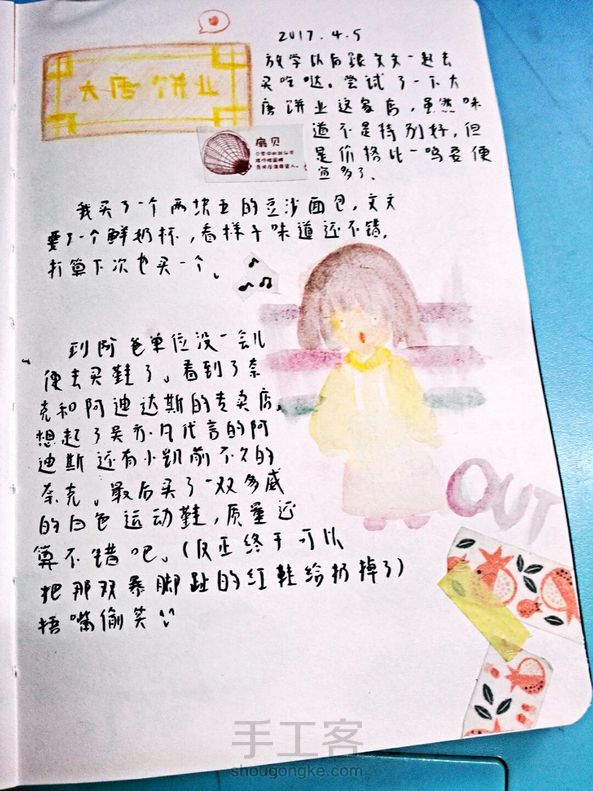 2017.4.5
大唐饼业
放学以后跟文文一起去
买吃哒。尝试了一下大
唐饼业这家店，虽然味
道不是特别好，但
是价格比一鸣要便
宜多了、
扇贝
我买了一个两块五的豆沙面包，文文
要了一个鲜奶杯，看样子味道还不错，
打算下次也买一个。
到阿爸单位没一会儿
便去买鞋了。看到了奈
克和阿迪达斯的专卖店，
想起了吴亦凡代言的阿
迪斯还有小凯前不久的
奈克。最后买了一双多威
的白色运动鞋，质量还
算不错吧。(反正终于可以
把那双暴脚趾的红鞋给扔掉了)
捂嘴偷笑
OUT
手工客
shougongke.com